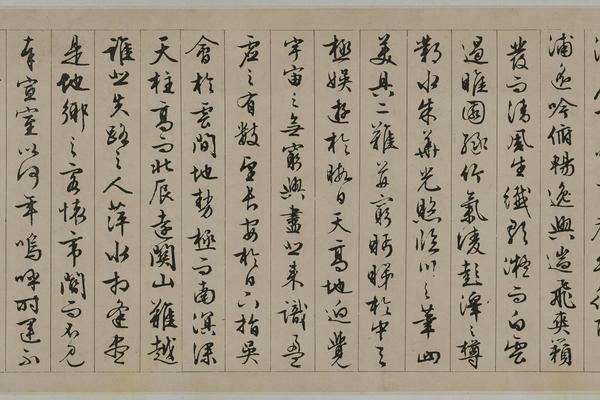 浦遙吟俯暢逸興遄飛爽籟
發而清風生纖歌凝而白雲
遏睢園綠竹氣凌彭澤之樽
鄴水朱華光照臨川之筆四
美具二難并窮眄睇於中天
極娛遊於暇日天高地迥覺
宇宙之無窮興盡悲來識盈
虛之有數望長安於日下指吳
會於雲間地勢極而南溟深
天柱高而北辰遠關山難越
誰悲失路之人萍水相逢盡
是他鄉之客懷帝閽而不見
奉宣室以何年嗚呼時運不